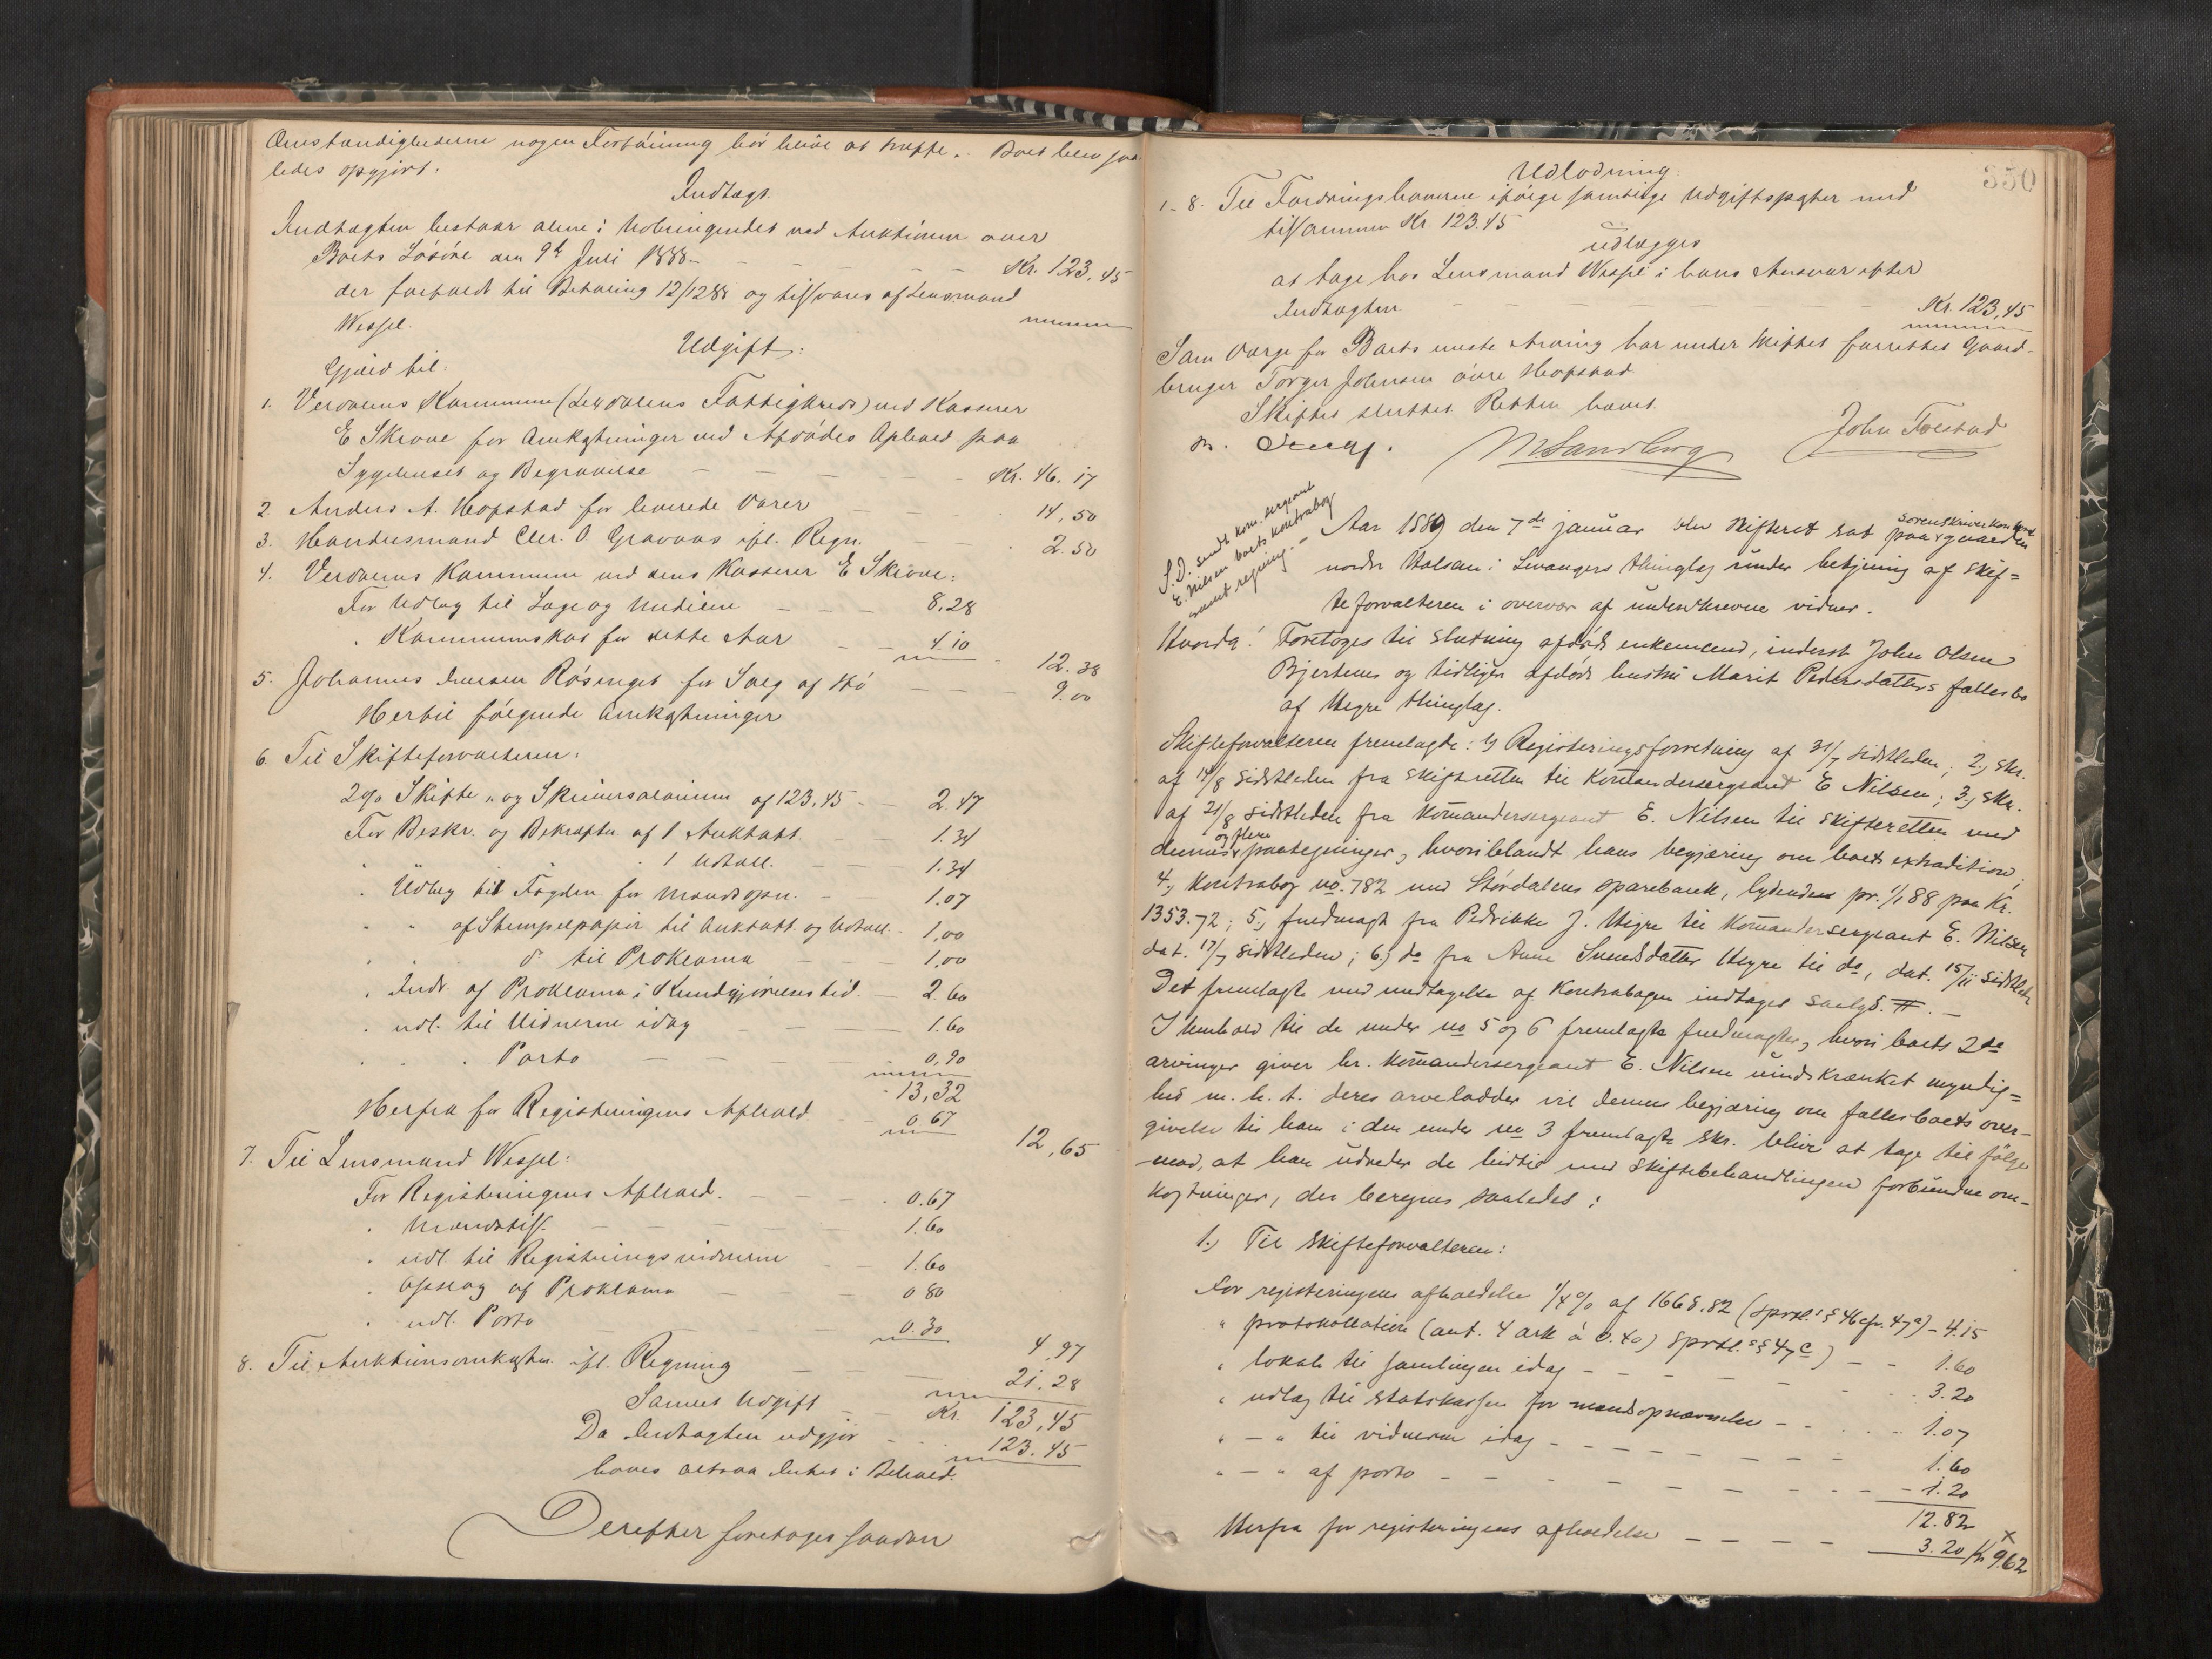 Omstændighederne nogen Forføining bør blive at træffe. Boet blev saa
ledes opgjört.
Indtægt.
Indtægten bestaar alene i Udbringendet ved Auktionen over
Boets Lösöre den 9de Juli 1888 - Kr. 123,45
der forfaldt til Betaling 12/12 88 og tilsvares af Lensmand
Wessel.
Udgift:
Gjæld til:
1. Verdalens Kommune (Lexdalens Fattigkreds) ved Kasserer
E Skrove for Omkostninger ved Afdødes Ophold paa
Sygehuset og Begravelse - Kr. 46.17
2. Anders A. Hopstad for leverede Varer 14,50
3. Handelsmand Chr. O Gravaas ifl. Regn. 2.50
4. Verdalens Kommune ved dens Kasserer E Skrove:
For Udlæg til Læge og Medicin 8,28
" Kommuneskat for dette Aar 4.10
12.38
5. Johannes Jensen Røsinget for Salg af Hö 9.00
Hertil følgende Omkostninger
6. Til Skifteforvalteren:
2% Skifte- og Skriversalarium af 123.45 2.47
For Beskr. og Bekræftn. af 1 Auktutt. 1.34
" 1 Udtall. 1.34
" Udlæg til Fogden for Mandsopn. 1.07
" " af Stempelpapir til Auktutt. og Udtall. 1,00
" " do til Proklama 1,00
" Indr. af Proklama i Kundgjörelsestid. 2.60
" udl. til Vidnerne idag 1.60
" " Porto 0,90
13,32
Herfra for Registreringens Afhold 0.67
12,65
7. Til Lensmand Wessel:
For Registreringens Afhold. 0.67
" Mandstill. 1.60
" udl. til Registreringsvidnerne 1.60
" Opslag af Proklama 0 80
" udl. Porto 0.30
4,97
8. Til Auktionsomkostn. ifl. Regning 21.28
Samlet Udgift Kr. 123,45
Da Indtægten udgjør 123.45
haves altsaa Intet i Behold.
Derefter foretoges saadan
350
Udlodning.
1-8. Til Fordringshaverne ifølge samtlige Udgiftsposter med
tilsammen Kr. 123.45
udlægges
at tage hos Lensmand Wessel i hans Ansvar efter
Indtægten Kr. 123,45
Som Værge for Boets umyndige Arving har under Skiftet forrettet Gaard-
bruger Torger Johnsen övre Hopstad
Skiftet sluttet. Retten hævet.
M Sandberg John Tolstad
S.D. sendt kom. sergeant
E. Nilsen boets kontrabog
samt regning. -
Aar 1889 den 7de januar blev skifteret sat paa sorenskriverkontoret gaarden
nordre Halsan i Levangers thinglag under betjening af skif=
teforvalteren i overvær af underskrevne vidner.
Hvorda: Foretoges til slutning afdøde enkemand, inderst John Olsen
Bjertems og tidligere afdøde hustru Marit Pedersdatters fællesbo
af Hegre thinglag.
Skifteforvalteren fremlagde: 1) Registreringsforretning af 31/7 sidstleden; 2) Skr.
af 14/8 sidstleden fra skifteretten til Komandersergeant E Nilsen; 3) Skr.
af 21/8 sidstleden fra Komandersergeant E. Nilsen til skifteretten med
dennes og flere paategninger, hvoriblandt hans begjæring om boets extradition;
4) Kontrabog no. 782 med Stördalens sparebank, lydende pr. 1/1 88 paa Kr.
1353.72; 5) fuldmagt fra Pedrikke J. Hegre til Komandersergeant E. Nilsen
dat. 17/7 sidstleden; 6) do fra Anne Svendsdatter Hegre til do, dat. 15/11 sidstleden
Det fremlagte med undtagelse af Kontrabogen indtages saalyd. #. -
I henhold til de under no 5 og 6 fremlagte fuldmagter, hvori boets 2de
arvinger giver hr. Komandersergeant E. Nilsen uindskrænket myndig=
hed m. h. t. deres arvelodder vil dennes begjæring om fællesboets over-
givelse til ham i den under no 3 fremlagte skr. blive at tage til følge
mod, at han udreder de hidtil med skiftebehandlingen forbundne om-
kostninger, der beregnes saaledes:
1.) Til skifteforvalteren:
For registreringens afholdelse 1/4% af 1668.82 (sprtl.s § 46 cfr. 47a) - 4.15
" protokollation (ant. 4 ark à 0.40) sprtl.s § 47c) - - 1.60
" lokale til samlingen idag - 3.20
" udlæg til statskassen for mandsopnævnelse - 1.07
" - " til vidnerne idag - 1.60
" - " af porto - 1.20
12.82
Herfra for registreringens afholdelse - 3.20 Kr 9.62